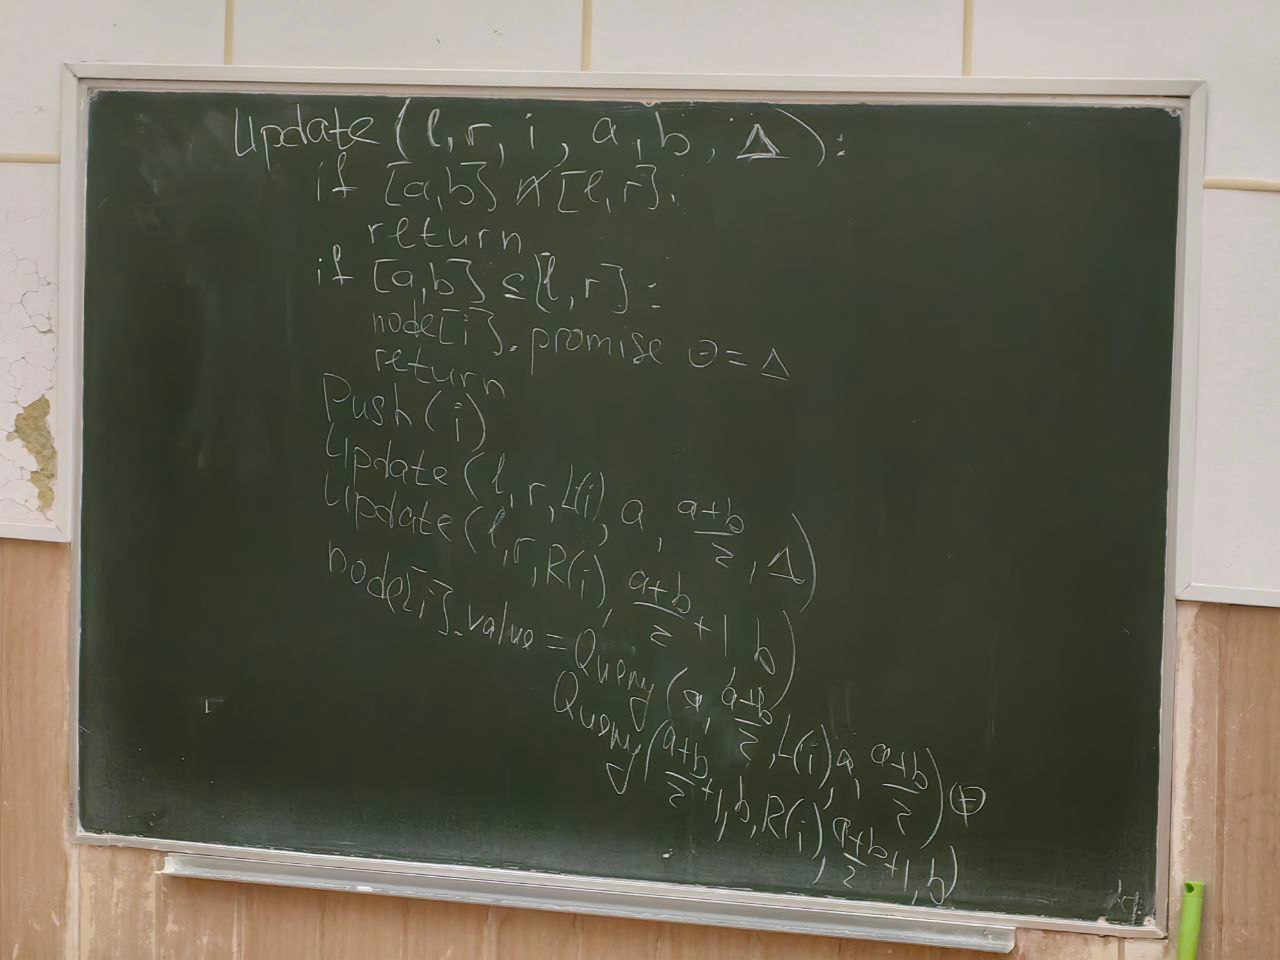 Update (l, r, i, a, b, Δ):
if [a,b] ∩̸ [l, r]:
return
if [a,b] ⊆ [l, r]:
node[i].promise ⊙= Δ
return
Push(i)
Update (l, r, L(i), a, a+b/2, Δ)
Update (l, r, R(i), a+b/2 + 1, b)
node[i].value = Query (a, a+b/2, L(i), a, a+b/2) ⊕
Query (a+b/2 + 1, b, R(i), a+b/2 + 1, b)